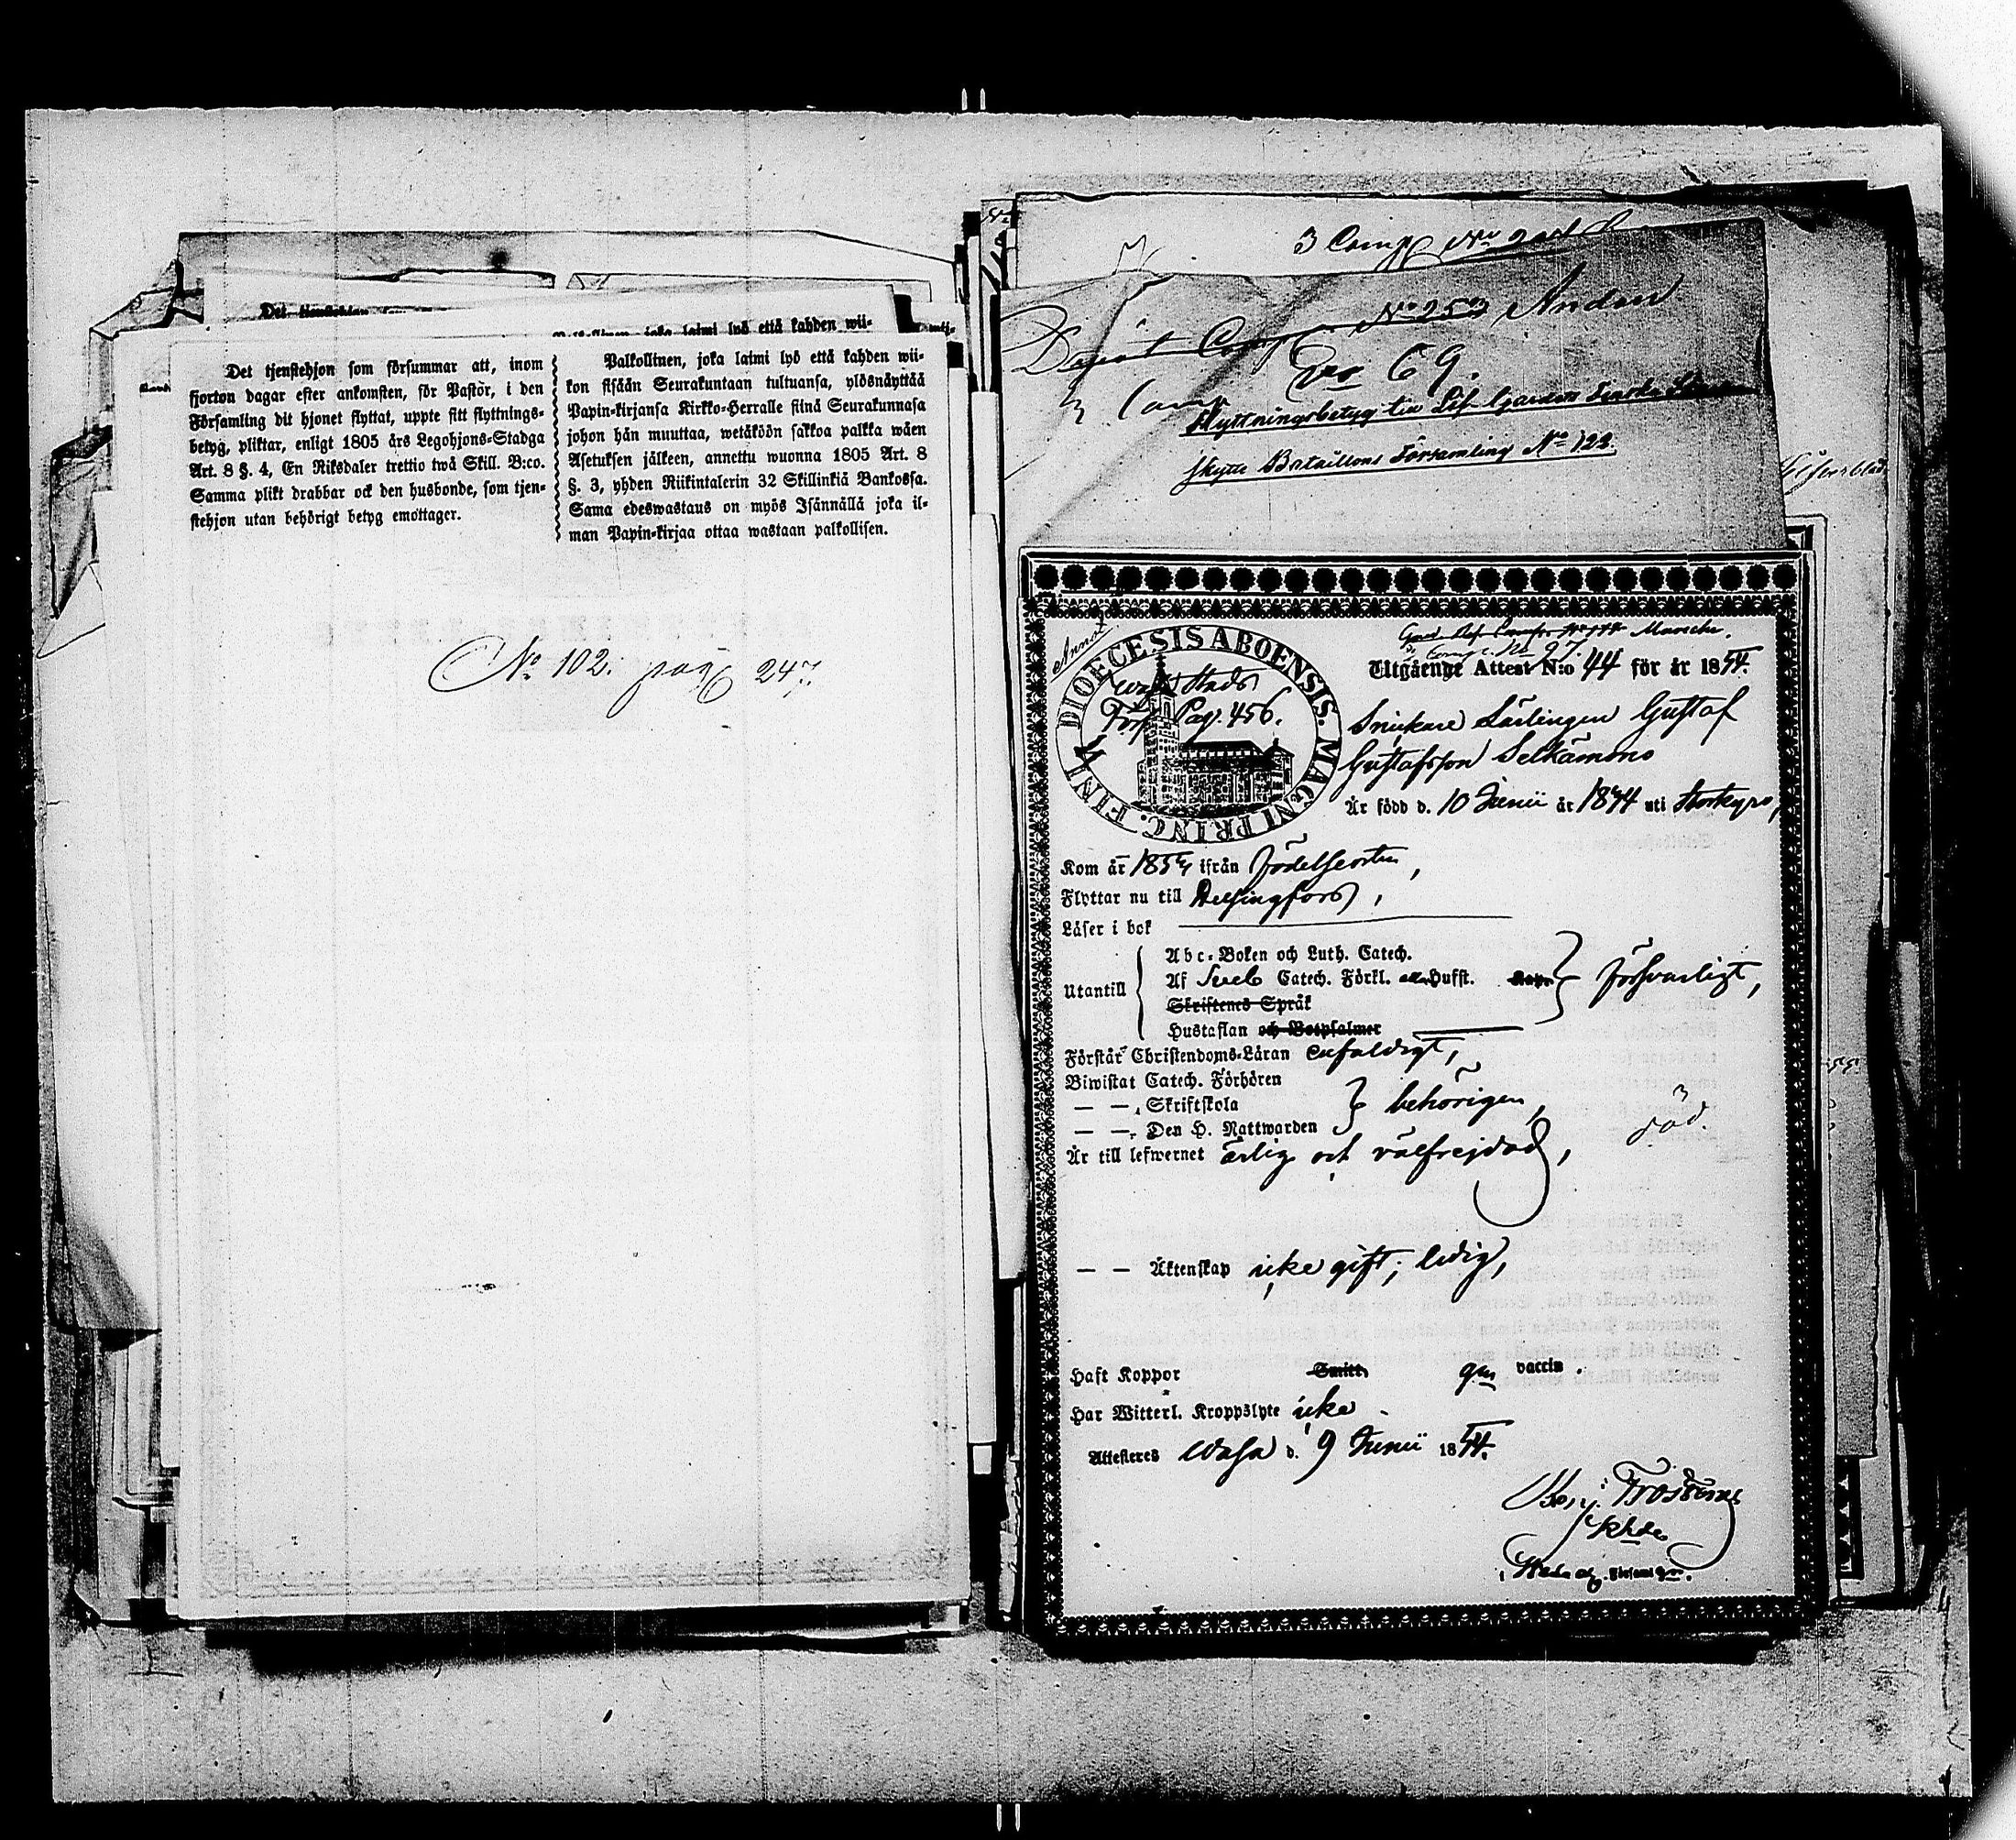 Det tjenstehjon som försummar att, inom
fjorton dagar efter ankomsten, för Pastor, i den
Församling dit hjonet flyttat, uppte sitt flyttnings-
betyg, pliktar, enligt 1805 års Legohjons-Stadga
Art. 8 §. 4, En Riksdaler trettio twå Skill. B:co.
Samma plikt drabbar ock den husbonde, som tjen-
stehjon utan behörigt betyg emottager.
Palkollinen, joka laimi lyö että kahden wii-
kon sisään Seurakuntaan tultuansa, ylösnäyttää
Papin-kirjansa Kirkko-Herralle siinä Seurakunnasa
johon hän muuttaa, wetäköön sakkoa palkka wäen
Asetuksen jälkeen, annettu wuonna 1805 Art. 8
§. 3, yhden Riikintalerin 32 Skillinkiä Bankossa.
Sama edeswastaus on myös Isännällä joka il-
man Papin-kirjaa ottaa wastaan palkollisen.
No 102. pag 247.
3 Comp No
Depôt Comp No 253 Andan
No 69.
3 Comp
Flyttningsbetyg till Lif Gardets Finska
Skytte Bataillons Församling No 122.
DIOECESIS ABOENSIS. MAGNI PRINC. FINL
Annot
Wasa Stads
Förs. Pag. 456.
Utgående Attest N:o 44 för år 1854.
Snickare Lärlingen Gustaf
Gustafsson Selkämono
Är född d. 10 Junii år 1834 uti Storkyro,
Kom år 1854 ifrån födelseorten,
Flyttar nu till Helsingfors,
Läser i bok
Utantill
Abc-Boken och Luth. Catech.
Af Sveb Catech. Förkl. eller Hufst.
Skriftenes Språk
Hustaflan och Botpsalmer
försvarligt,
Förstår Christendoms-Läran enfaldigt,
Biwistat Catech. Förhören
— — Skriftskola
— — Den H. Nattwarden
behörigen,
död.
Är till lefwernet ärlig och välfrejdad,
— — Äktenskap icke gift; ledig,
Haft Koppor Smitt. gm vaccin.
Har Witterl. Kroppslyte icke.
Attesteres Wasa d. 9 Junii 1854.
Benj. Frosterus
Khde